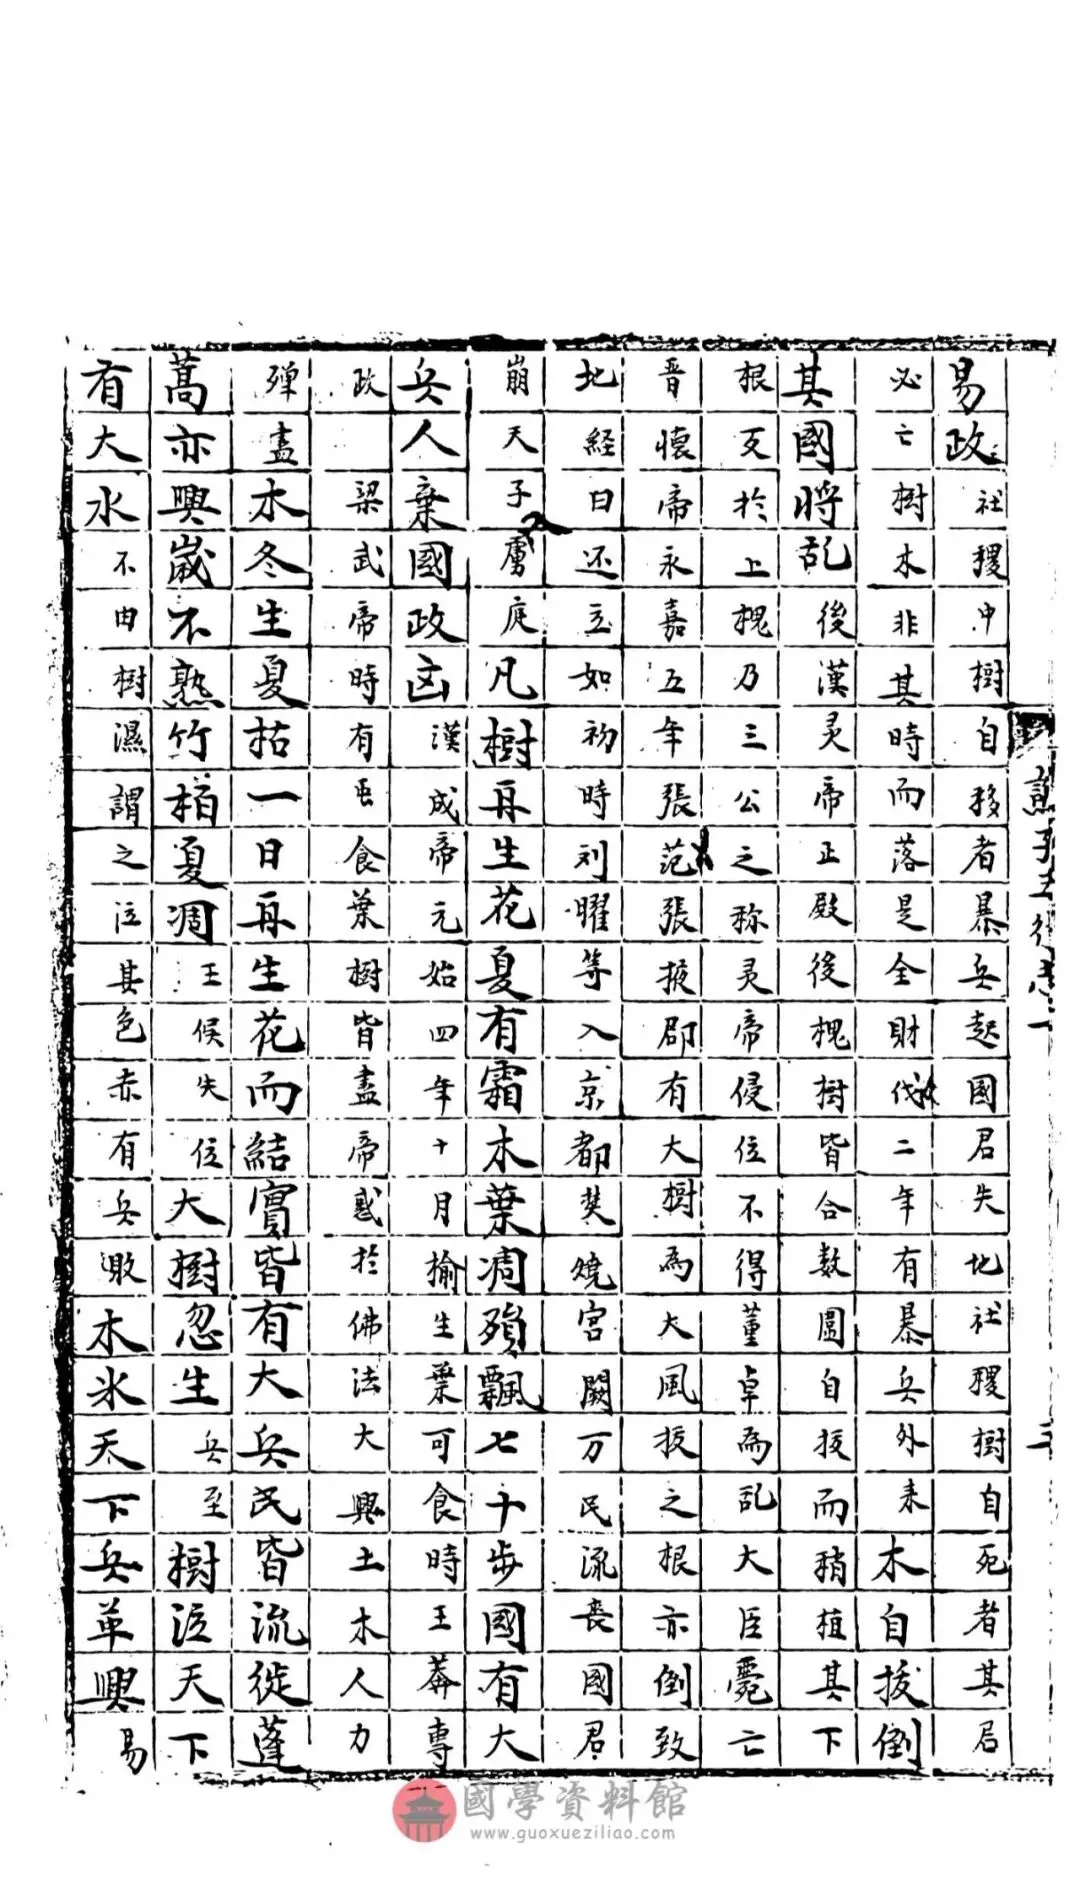 易政社稷中樹自移者暴兵起國君失地社稷樹自死者其君
必亡樹木非其時而落是全財伐二年有暴兵外来木自拔倒
其國將乱後漢灵帝正殿後槐樹皆合数圍自拔而稍植其下
根反扵上槐乃三公之称灵帝侵位不得董卓而乱大臣斃亡
晋懐帝永嘉五年張范張掖郡有大樹為大風拔之根亦倒致
北経日还立如初時刘曜等入京都焚燒宮闕万民流丧國君
崩天子虜庭凡樹再生花夏有霜木葉凋殞飄七十步國有大
兵人棄國政凶漢成帝元始四年十月榆生葉可食時王莽專
政梁武帝時有䖝食葉樹皆盡帝惑扵佛法大興土木人力
殫盡木冬生夏枯一日再生花而結實皆有大兵民皆流徙蓬
蒿亦興嵗不熟竹栢夏凋王候失位大樹忽生兵至樹泣天下
有大水不由樹濕謂之泣其色赤有兵敗木氷天下兵革興易
三
國學資料館
www.guoxueziliao.com